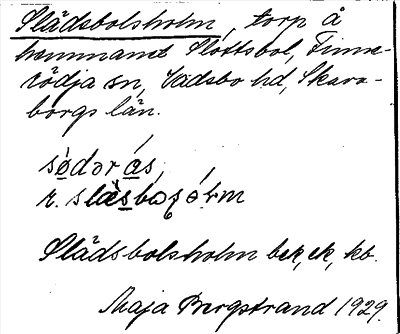 Slädsbolsholm, torp å
hemmanet Slottsbol, Finne-
rödja sn, Vadsbo hd, Skara-
borgs län.
södər ås,
r.
Slädsbolsholm bek, ek, kb.
Maja Bergstrand 1929.